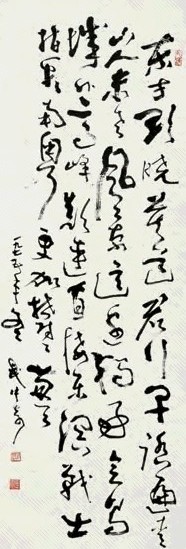 东方欲晓莫道君行早踏遍青
山人未老风景这边独好会昌
城外高峰颠连直接东溟战士
指看南粤更加郁郁葱葱
一九七